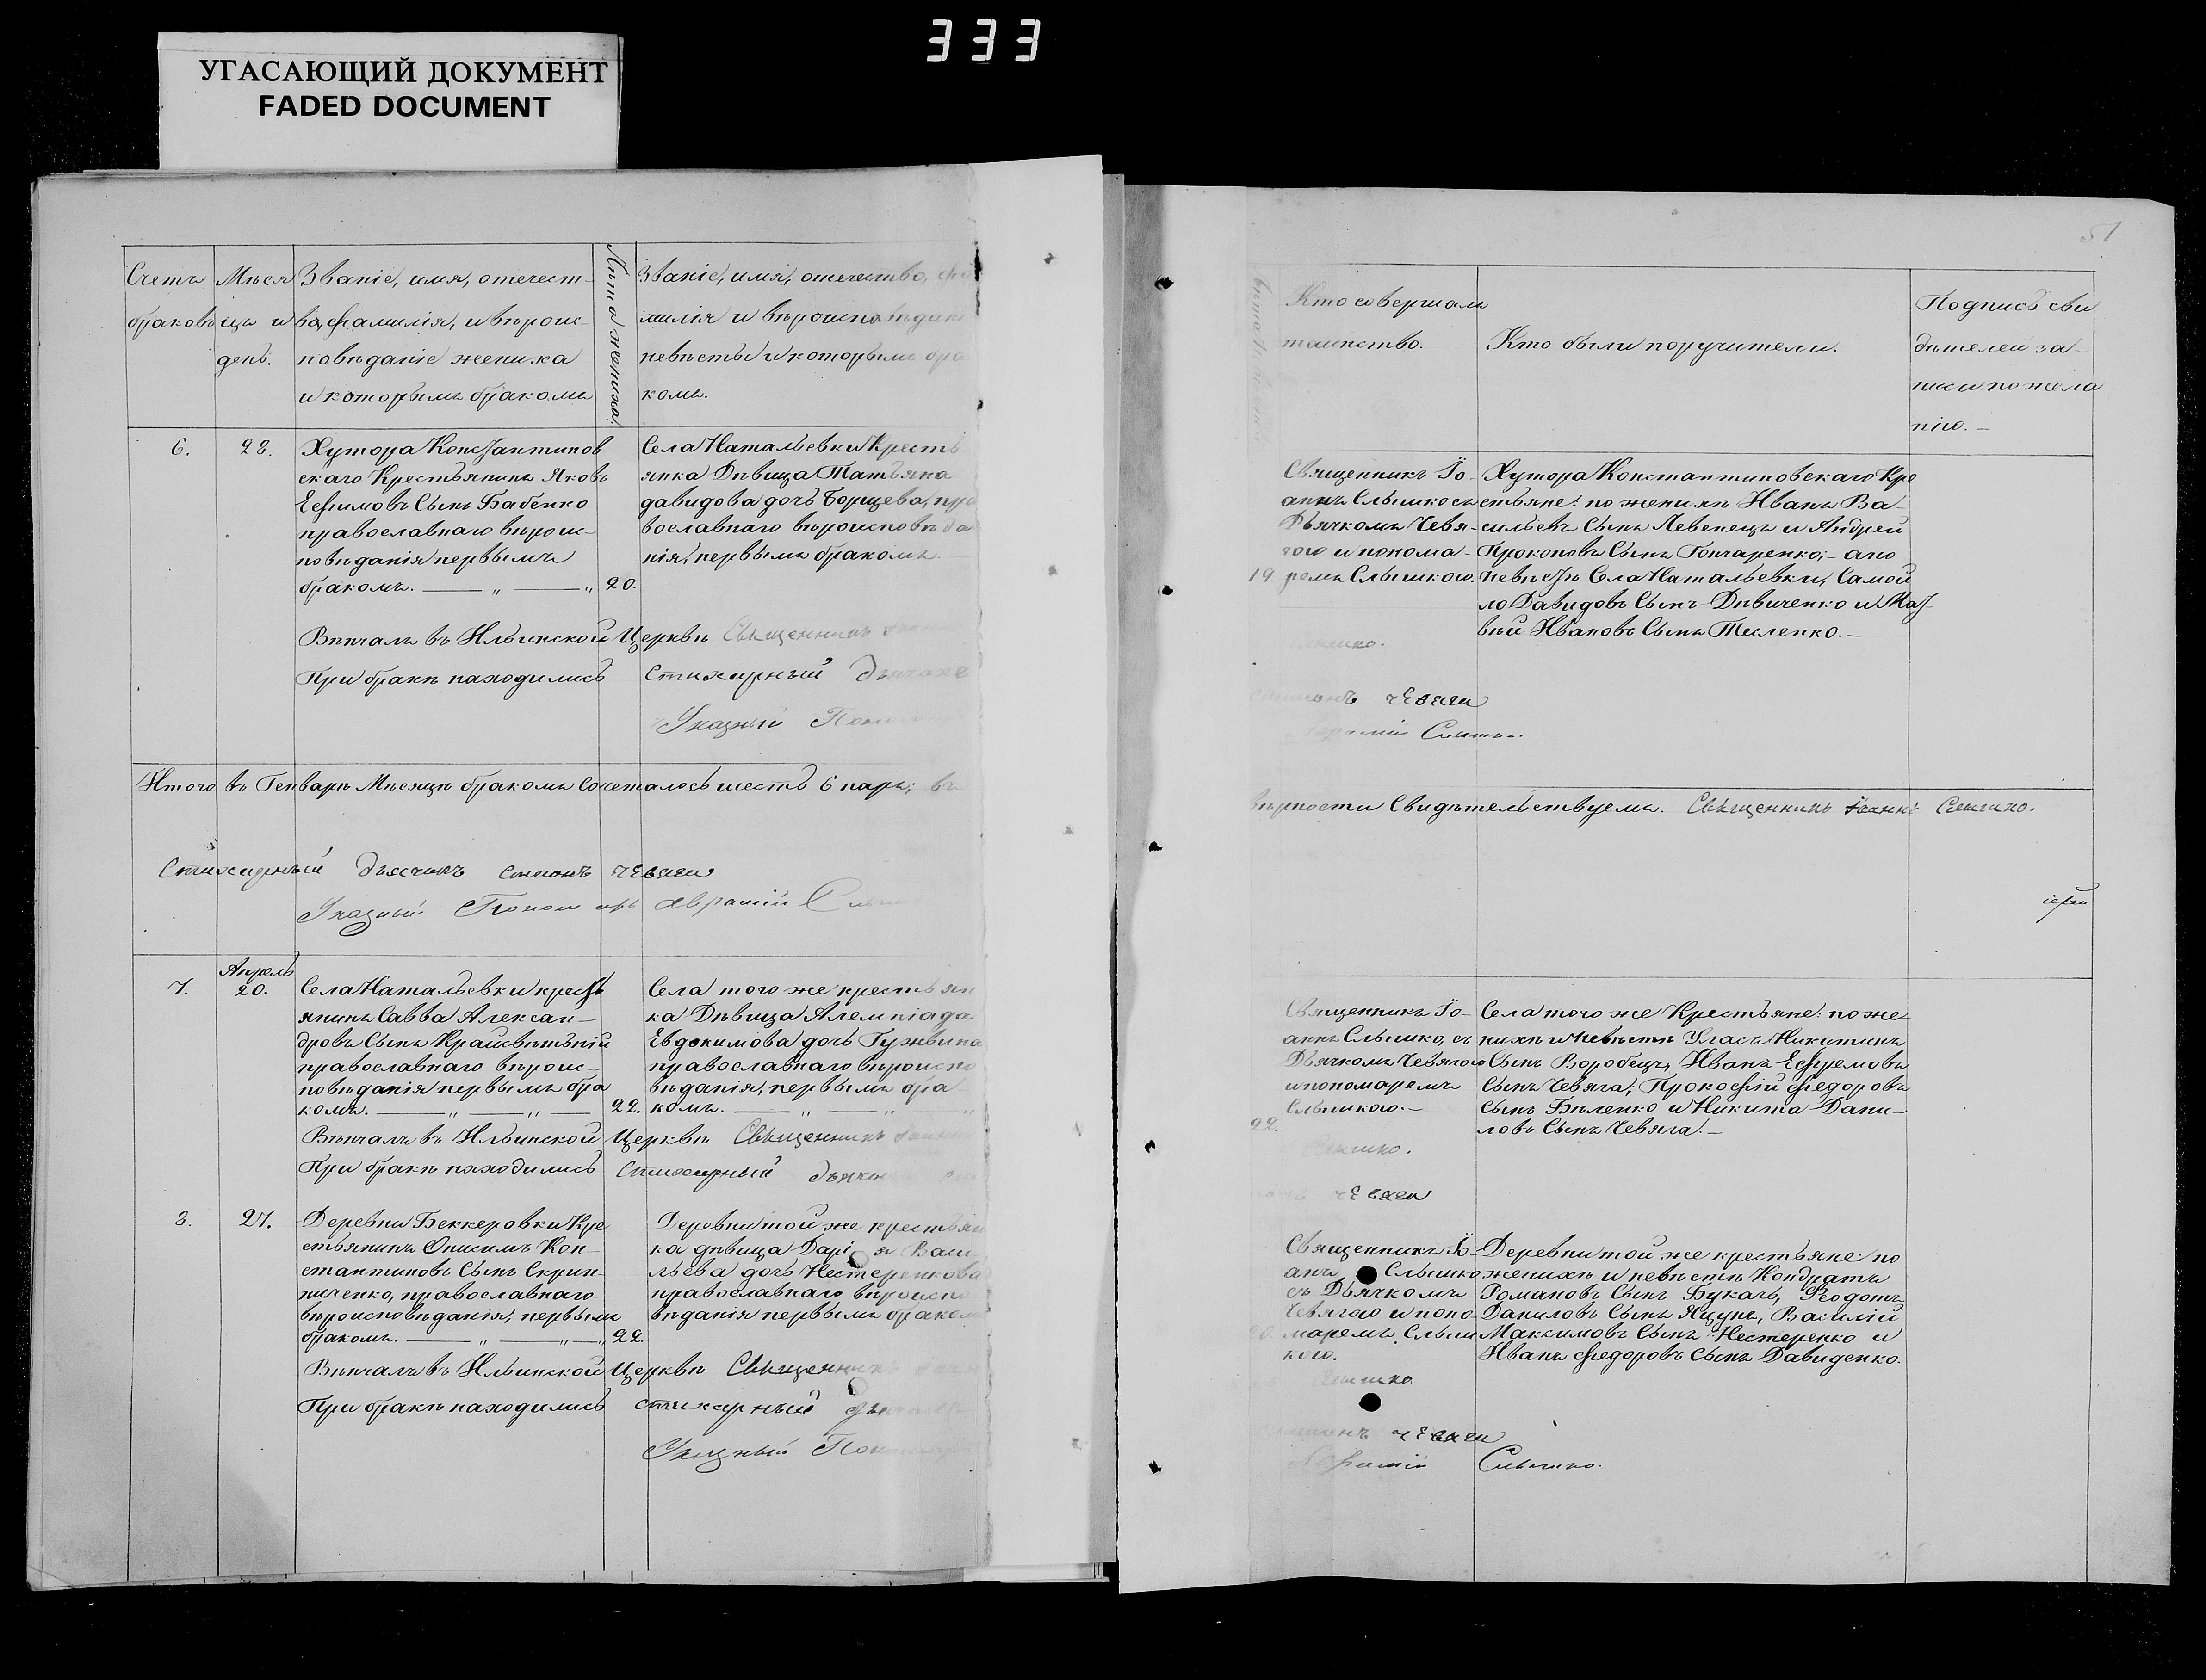 333
УГАСАЮЩИЙ ДОКУМЕНТ
FADED DOCUMENT
51
Счетъ
браковъ
Мѣся
цъ и
день.
Званіе, имя, отечест-
во, фамилія, и вѣроис-
повѣданіе жениха
и которымъ бракомъ
Лѣта жениха.
Званіе, имя, отечество, фа
милія и вѣроисповѣдані
невѣсты и которымъ бра
комъ.
Кто совершалъ
таинство.
Кто были поручители.
Подпись сви
дѣтелей за-
писи по жела
нію.-
6.
28.
Хутора Константинов
скаго Крестьянинъ Яковъ
Ефимовъ Сынъ Бабенко
православнаго вѣроис-
повѣданія первымъ
бракомъ. — „ — „
20.
Села Натальевки Кресть
янка Дѣвица Татьяна
Давидова дочь Борщева, пра
вославнаго вѣроисповѣда
нія, первымъ бракомъ.-
19.
Священникъ Іо-
аннъ Слышко съ
Дьячкомъ Чевя-
гою и понома-
ремъ Слышкою.
Хутора Константиновскаго Кре
стьяне: по женихѣ Иванъ Ва-
сильевъ Сынъ Левенецъ и Андрей
Прокоповъ Сынъ Гончаренко;- а по
невѣстѣ Села Натальевки, Самой
ло Давидовъ Сынъ Дѣвиченко и Мат
вѣй Ивановъ Сынъ Тесленко.-
Вѣнчалъ въ Ильинской Церквѣ Священникъ
При бракѣ находились Стихарный Дьячокъ
Чевяга
Указный Поном
Слышко.
Итого въ Генварѣ Мѣсяцѣ бракомъ Сочеталось шесть 6 паръ; въ
вѣрности Свидѣтельствуемъ. Священникъ Іоаннъ Слышко.
Стихарный дьячокъ Симонъ Чевяга
Указный Пономарь Авраамій
7.
Апрѣль
20.
Села Натальевки крестъ
янинъ Савва Алексан-
дровъ Сынъ Крайсвѣтьній
православнаго вѣроис-
повѣданія первымъ бра
комъ. — „ — „ —
22.
Села того же крестьян
ка Дѣвица Алемпіада
Евдокимова дочь Гужвина
православнаго вѣроиспо
вѣданія, первымъ бра-
комъ. — „ — „
22.
Священникъ Іо-
аннъ Слышко, съ
Дьячкомъ Чевягою
и пономаремъ
Слышкою.-
Села того же Крестьяне: по же-
нихѣ и невѣстѣ Уласъ Никитинъ
Сынъ Воробецъ, Иванъ Ефремовъ
Сынъ Чевяга; Прокофій Федоровъ
Сынъ Биленко и Никита Дани-
ловъ Сынъ Чевяга.-
Вѣнчалъ въ Ильинской Церквѣ Священникъ
Слышко.
При бракѣ находились Стихарный дьячокъ
Чевяга
8.
27.
Деревни Беккеровки Кре
стьянинъ Онисимъ Кон-
стантиновъ Сынъ Скрип-
ниченко, православнаго
вѣроисповѣданія, первымъ
бракомъ. — „ — „ — „
22.
Деревни той же крестьян
ка дѣвица Дарія Васи
льева дочь Нестеренкова
православнаго вѣроиспо
вѣданія первымъ браком
20.
Священникъ Іо-
анъ Слышко
съ Дьячкомъ
Чевягою и поно-
маремъ Слыш
кою.
Деревни той же крестьяне: по
женихѣ и невѣстѣ Кондратъ
Романовъ Сынъ Букачъ, Феодотъ
Даниловъ Сынъ Яцунъ, Василій
Максимовъ Сынъ Нестеренко и
Иванъ Федоровъ Сынъ Давиденко.
Вѣнчалъ въ Ильинской Церквѣ Священникъ
Слышко
При бракѣ находились стихарный дьячокъ
Чевяга
Указный Пономарь
Слышко.